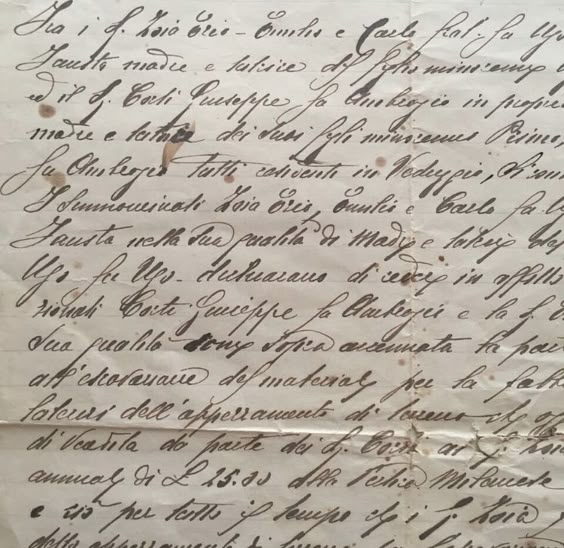 Fra i S. Zoia Ezio - Emilio e Carlo frat. fu Ugo
Fausta madre e tutrice del figlio minorenne
ed il S. Corti Giuseppe fu Ambrogio in proprio
madre e tutrice dei suoi figli minorenni Primo,
fu Ambrogio tutti esistenti in Veduggio, si
I summominati Zoia Ezio, Emilio e Carlo fu
Fausta nella sua qualità di Madre e tutrice
Ugo fu Ugo dichiarano di cedere in affitto
Corti Giuseppe fu Ambrogio e la S.
sua qualità come sopra accennata la
all'escavazione del materiale per la
laterizi dell'appezzamento di terreno che
di vendita da parte dei S. Corti ai S. Zoia
annuale di £ 25.00 alla Pertica Milanese
e ciò per tutto il tempo che i S. Zoia
dello appezzamento di terreno